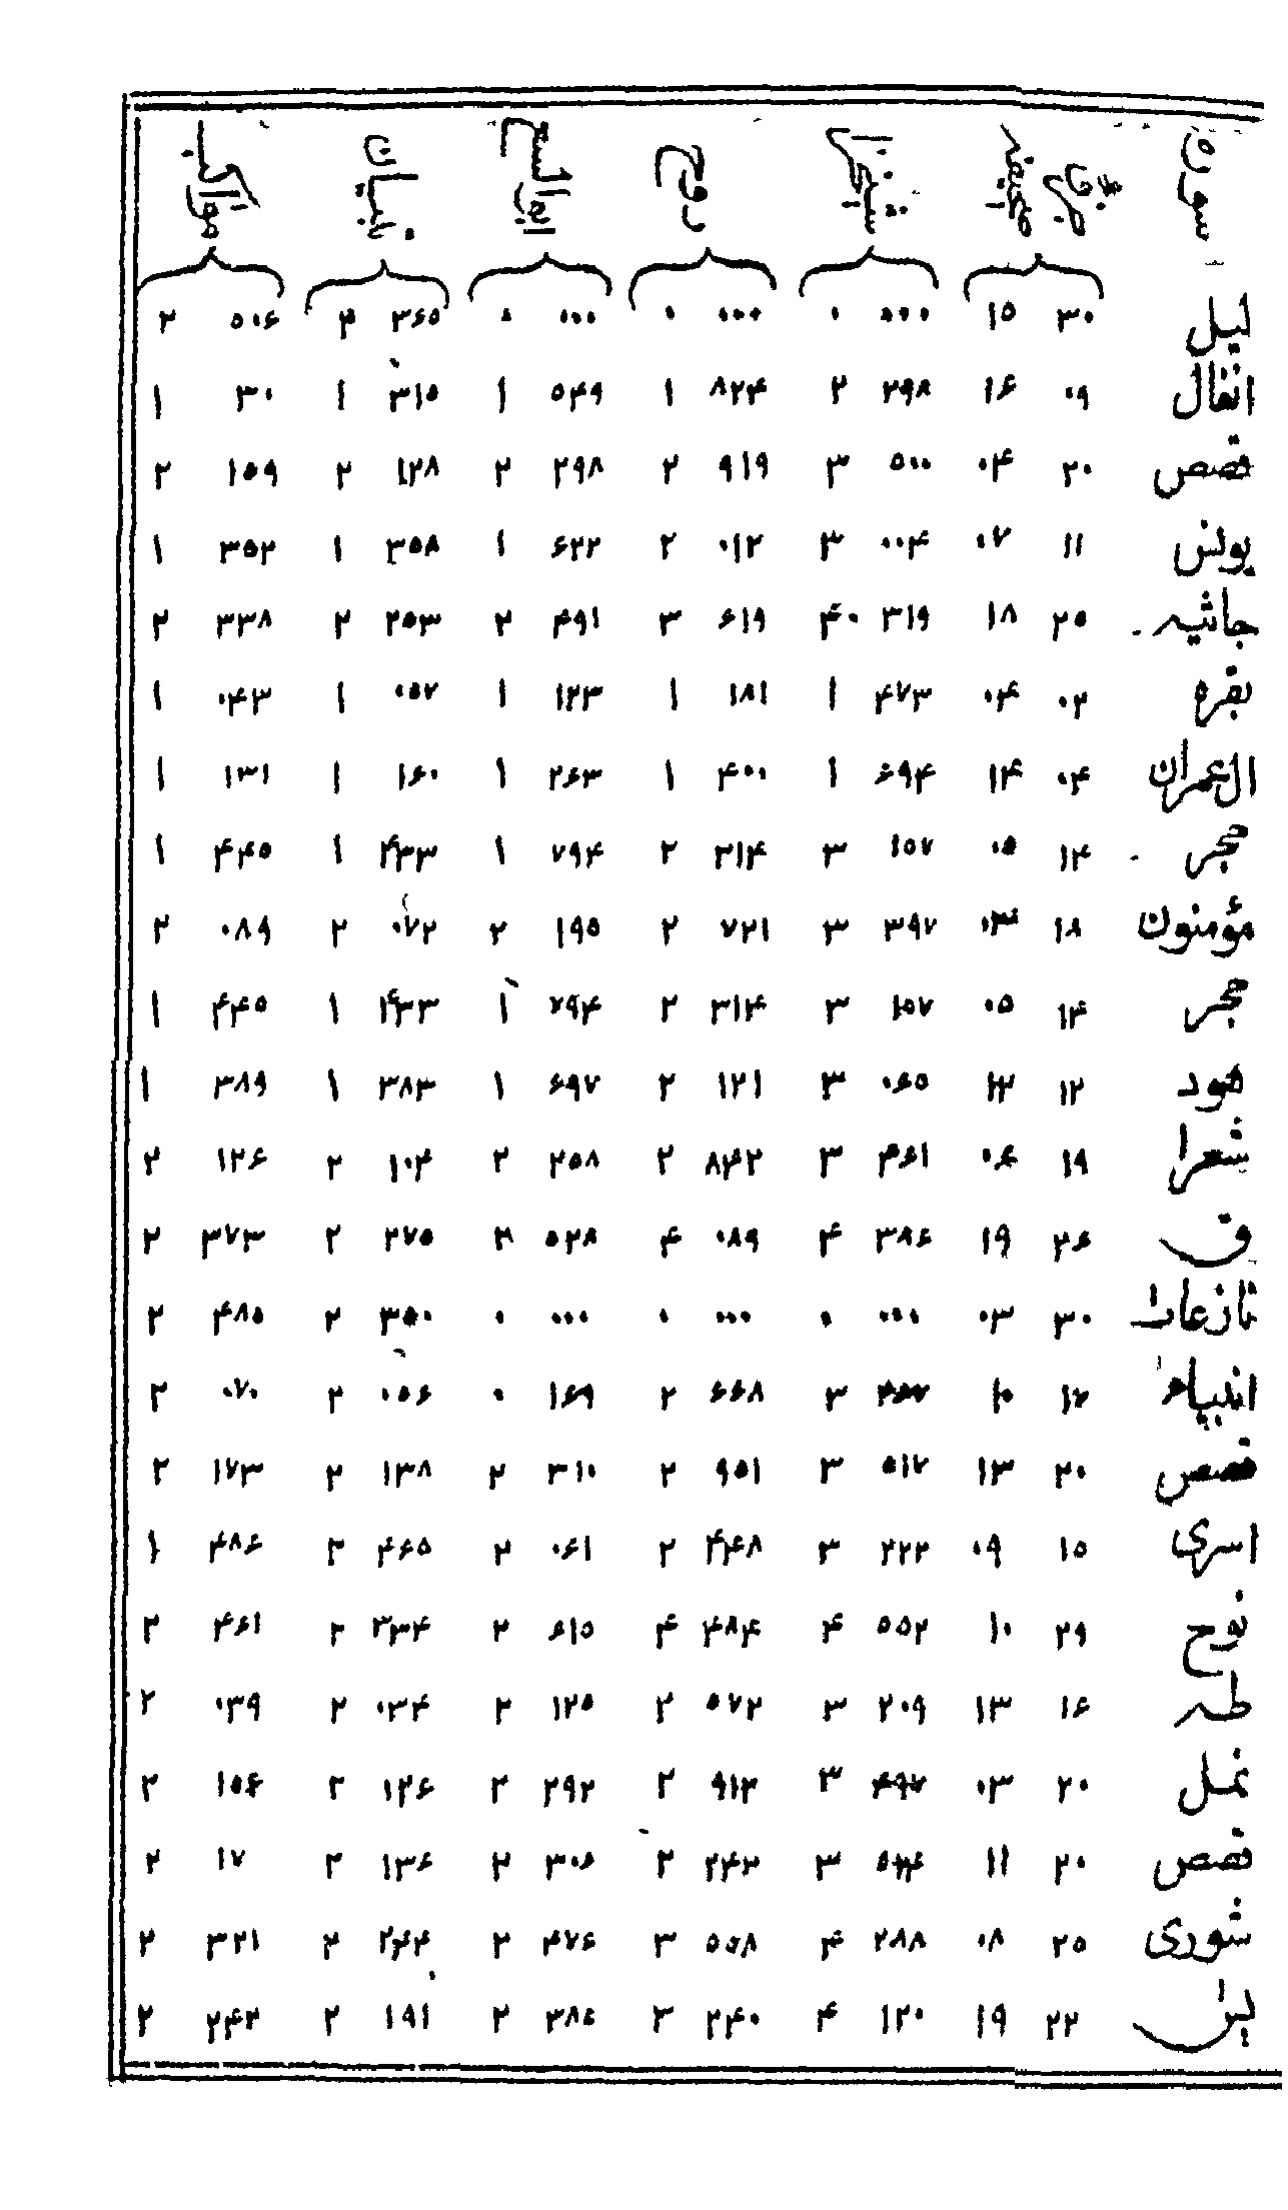 سوره جزو و صحیفه شیرازی روح ابوالسع تبیان مواکب
لیل ۳۰ ۱۵ ۰۰۰ ۰ ۰۰۰ ۰ ۰۰۰ ۰ ۳۶۵ ۲ ۵۰۶ ۲
انفال ۰۹ ۱۶ ۲۹۸ ۲ ۸۲۴ ۱ ۵۴۹ ۱ ۳۱۵ ۱ ۳۰ ۱
قصص ۲۰ ۰۴ ۵۰۰ ۳ ۹۱۹ ۲ ۲۹۸ ۲ ۱۲۸ ۲ ۱۵۹ ۲
یونس ۱۱ ۰۷ ۰۰۴ ۳ ۰۱۲ ۲ ۶۲۲ ۱ ۳۵۸ ۱ ۳۵۲ ۱
جاثیه ۲۵ ۱۸ ۳۱۹ ۴۰ ۶۱۹ ۳ ۴۹۱ ۲ ۲۵۳ ۲ ۳۳۸ ۲
بقره ۰۲ ۰۴ ۴۷۳ ۱ ۱۸۱ ۱ ۱۲۳ ۱ ۰۵۷ ۱ ۰۴۳ ۱
ال عمران ۰۴ ۱۴ ۶۹۴ ۱ ۴۰۰ ۱ ۲۶۳ ۱ ۱۶۰ ۱ ۱۳۱ ۱
حجر ۱۴ ۰۵ ۱۵۷ ۳ ۳۱۴ ۲ ۷۹۴ ۱ ۴۳۳ ۱ ۴۴۵ ۱
مؤمنون ۱۸ ۰۳ ۳۹۷ ۳ ۷۲۱ ۲ ۱۹۵ ۲ ۰۷۲ ۲ ۰۸۹ ۲
حجر ۱۴ ۰۵ ۱۵۷ ۳ ۳۱۴ ۲ ۷۹۴ ۱ ۴۳۳ ۱ ۴۴۵ ۱
هود ۱۲ ۱۲ ۰۶۵ ۳ ۱۲۱ ۲ ۶۹۷ ۱ ۳۸۳ ۱ ۳۸۹ ۱
شعرا ۱۹ ۰۶ ۴۶۱ ۳ ۸۴۲ ۲ ۲۵۸ ۲ ۱۰۴ ۲ ۱۲۶ ۲
ق ۲۶ ۱۹ ۳۸۶ ۴ ۰۸۹ ۴ ۵۲۸ ۲ ۲۷۵ ۲ ۳۷۳ ۲
نازعات ۳۰ ۰۳ ۰۰۰ ۰ ۰۰۰ ۰ ۰۰۰ ۰ ۳۵۰ ۲ ۴۸۵ ۲
انبیاء ۱۷ ۱۰ ۳ ۶۶۸ ۲ ۱۶۹ ۰ ۰۵۶ ۲ ۰۷۰ ۲
قصص ۲۰ ۱۳ ۵۱۷ ۳ ۹۵۱ ۲ ۳۱۰ ۲ ۱۳۸ ۲ ۱۷۳ ۲
اسری ۱۵ ۰۹ ۲۲۲ ۳ ۴۴۸ ۲ ۰۶۱ ۲ ۴۶۵ ۲ ۴۸۶ ۱
نوح ۲۹ ۱۰ ۵۵۲ ۴ ۴۸۴ ۴ ۶۱۵ ۲ ۳۳۴ ۲ ۴۶۱ ۲
طه ۱۶ ۱۳ ۲۰۹ ۳ ۵۷۲ ۲ ۱۲۵ ۲ ۰۳۴ ۲ ۰۳۹ ۲
نمل ۲۰ ۰۳ ۴۹۷ ۳ ۹۱۲ ۲ ۲۹۲ ۲ ۱۲۶ ۲ ۱۵۶ ۲
قصص ۲۰ ۱۱ ۳ ۲۴۲ ۲ ۳۰۶ ۲ ۱۳۶ ۲ ۱۷ ۲
شوری ۲۵ ۰۸ ۲۸۸ ۴ ۵۵۸ ۳ ۴۷۶ ۲ ۲۴۴ ۲ ۳۲۱ ۲
یس ۲۲ ۱۹ ۱۲۰ ۴ ۲۴۰ ۳ ۳۸۶ ۲ ۱۹۱ ۲ ۲۴۲ ۲